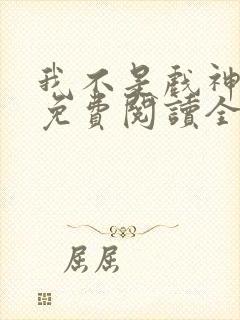 我不是戲神
免費閱讀全
屈屈